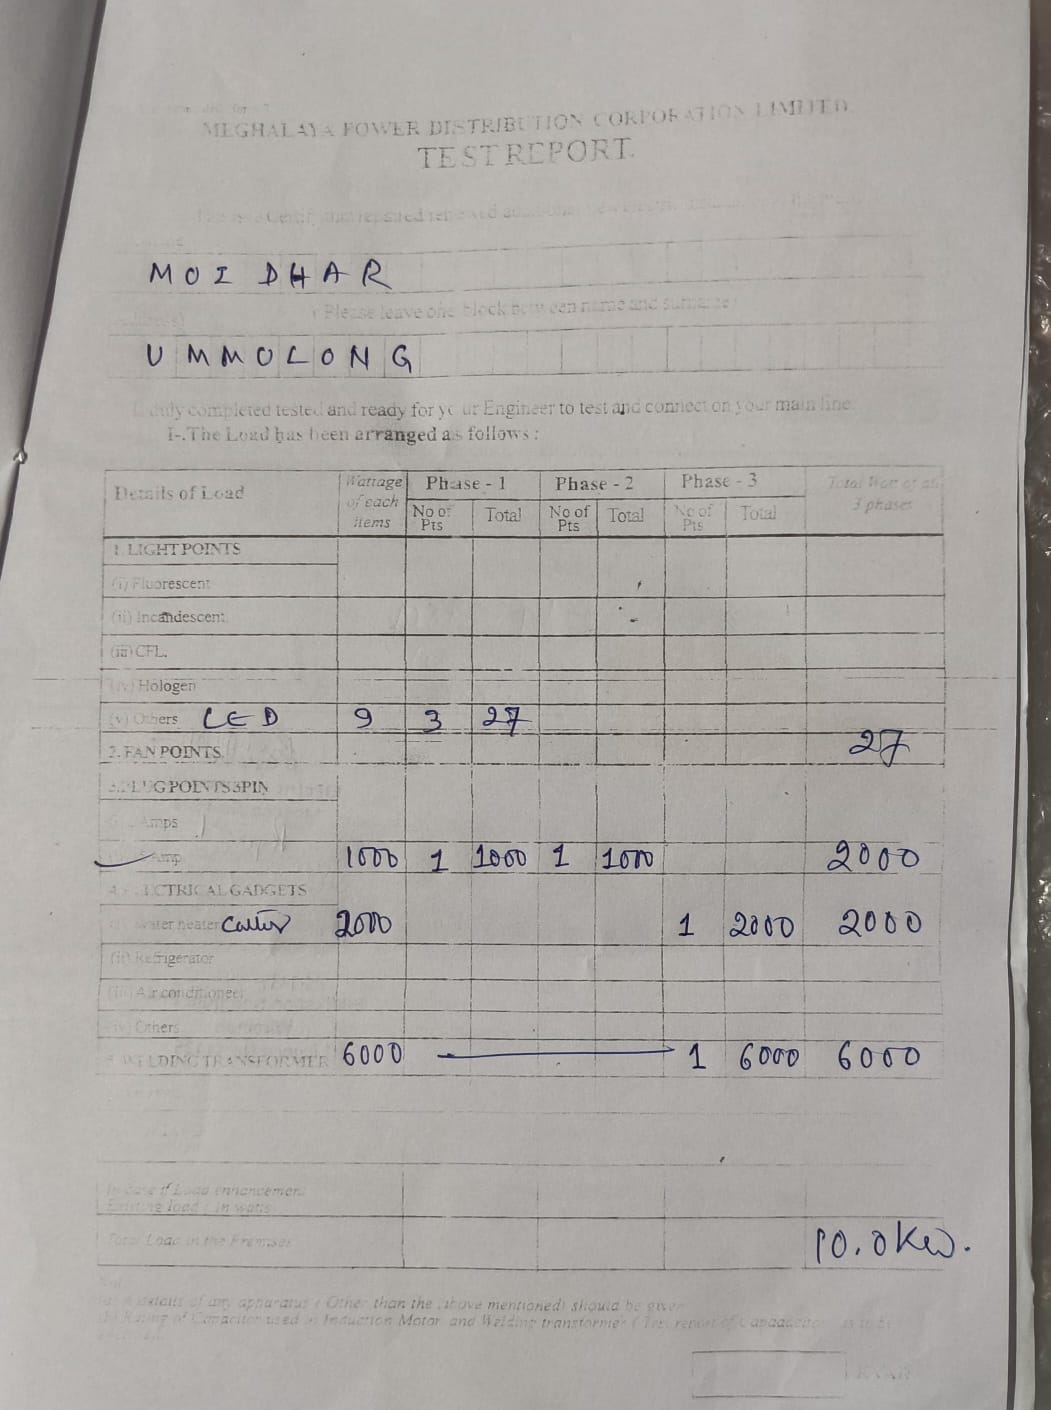 MEGHALAYA POWER DISTRIBUTION CORPORATION LIMITED
TEST REPORT.
MOI DHAR
( Please leave one block between name and surname)
UMMULONG
duly completed tested and ready for your Engineer to test and connect on your main line.
I-.The Load has been arranged as follows :
Details of Load Wattage of each items Phase - 1 Phase - 2 Phase - 3 Total Watt of all 3 phases
No of Pts Total No of Pts Total No of Pts Total
1. LIGHT POINTS
(i) Fluorescent
(ii) Incandescent
(iii) CFL.
(iv) Hologen
(v) Others LED 9 3 27
2. FAN POINTS 27
3. PLUG POINTS 3PIN
Amps
Amp 1000 1 1000 1 1000 2000
4. ELECTRICAL GADGETS
(i) Water heater 2000 1 2000 2000
(ii) Refrigerator
(iii) Air conditioner
(iv) Others
WELDING TRANSFORMER 6000 1 6000 6000
In case of Load enhancement
Existing load ( In watts
Total Load in the Premises 10.0 KW.
details of any apparatus ( Other than the above mentioned) should be given
Rating of Capacitor used in Induction Motor and Welding transformer ( Test report of Capacitor is to be
KVAR